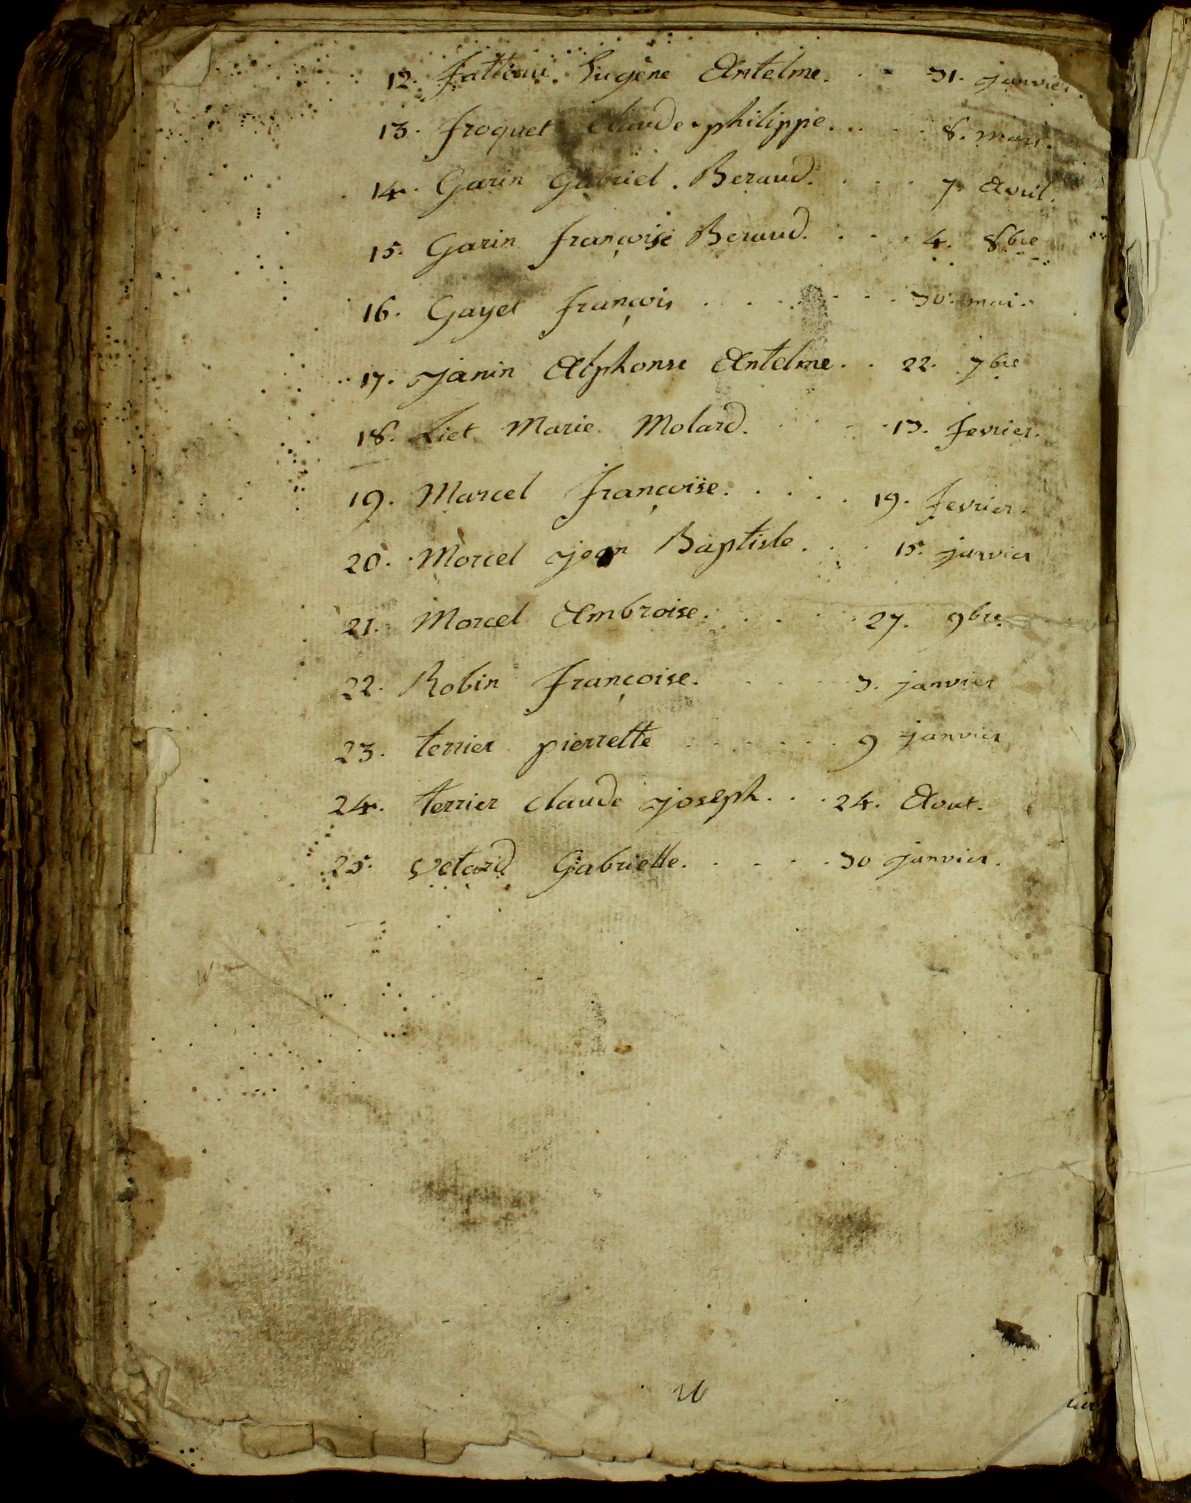 12. Eugène Antelme. . . 31. janvier.
13. froquet Claude philippe. . . . . 8. mars.
14. Garin Gabriel. Beraud. . . . . 7. Avril.
15. Garin françoise Beraud. . . . 4. 8bre
16. Gayet françois . . . . . . . 30. mai.
17. janin Alphonse Antelme . . 22. 7bre
18. Liet Marie Molard. . . . . 13. fevrier.
19. Marcel françoise. . . . . 19. fevrier.
20. Morcel jean Baptiste. . . . 15. janvier
21. Morcel Ambroise. . . . . 27. 9bre
22. Robin françoise. . . . . 3. janvier
23. terrier pierrette . . . . . . 9 janvier
24. terrier claude joseph. . . 24. Aout.
25. Gabrielle. . . . . 30 janvier.